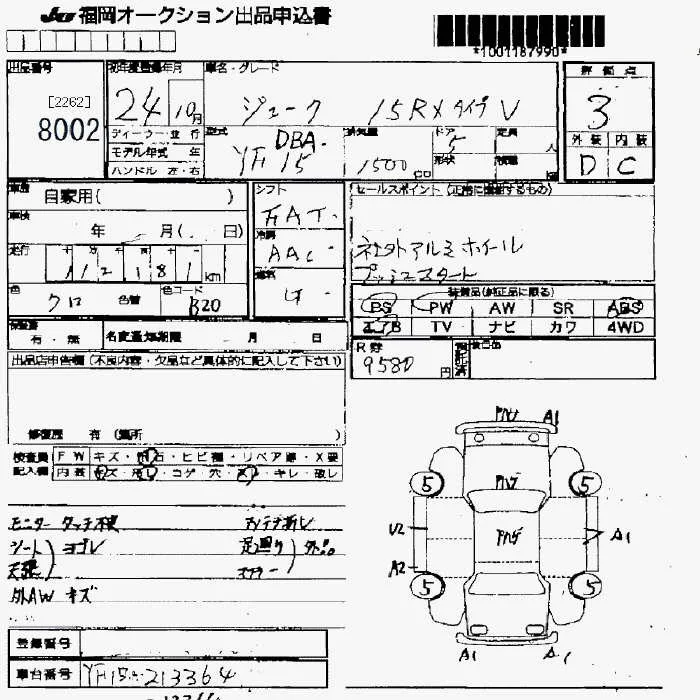 JU 福岡オークション出品申込書
*1001187990*
出品番号
[2262]
8002
初年度登録年月
24 10月
ディーラー 並行
モデル年式 年
ハンドル 左・右
車名・グレード
ジューク 15RX タイプV
型式 DBA-
YF15
排気量
1500 cc
ドア 5
形状
定員 人
積載 kg
評価点
3
外装 内装
D C
車歴 自家用( )
車検
年 月( . 日)
走行 十 万 千 百 十 一
112181 km
色 クロ 色替 色コード B20
シフト
FAT
冷房
AAC
燃料
G
セールスポイント (正常に機能するもの)
社外アルミホイール
プッシュスタート
装備品(純正品に限る)
PS PW AW SR ABS
エアB TV ナビ カワ 4WD
保証書
有・無
名変通知期限 月 日
R券
9580 円
出品店申告欄 (不良内容・欠品など具体的に記入して下さい)
修復歴 有 (箇所 )
検査員
記入欄
FW キズ・飛石・ヒビ割・リペア跡・X要
内装 キズ・汚レ・コゲ穴・キレ・破レ
モニター タッチ不良 アンテナ折レ
シート ヨゴレ 足廻リ
天張
外AW キズ
A1
5 5
U2 A1
A2
5 5
A1 A1
登録番号
車台番号 YF15-213364